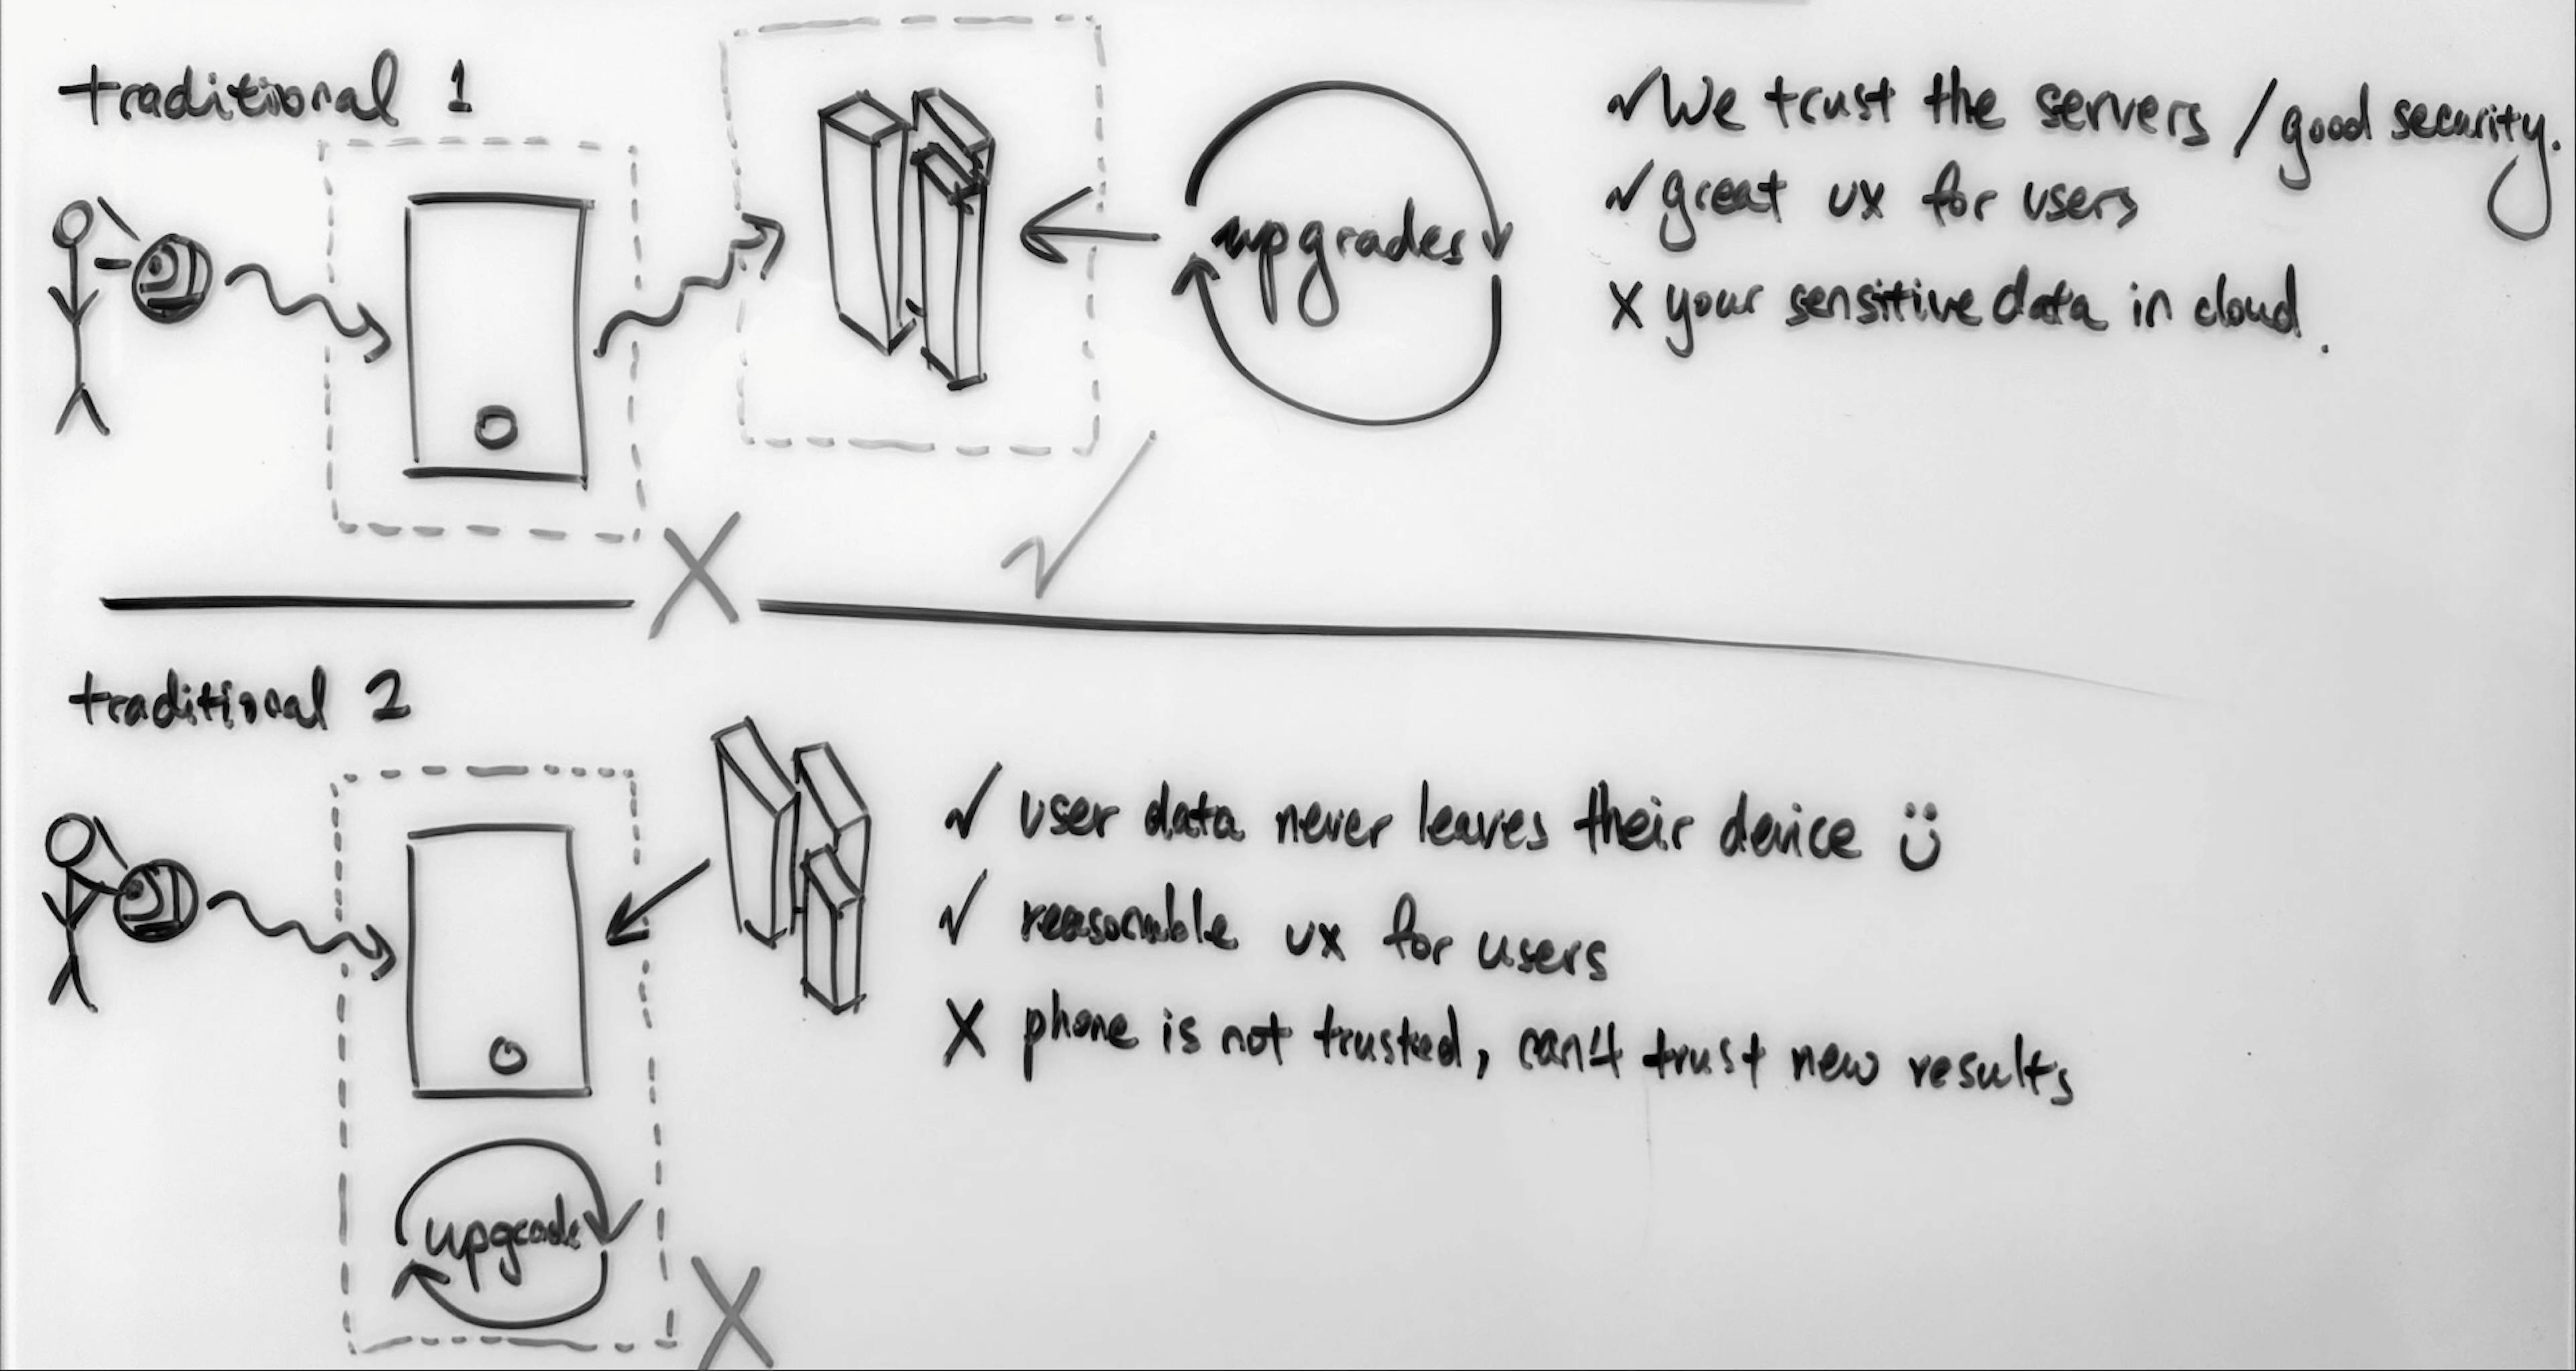 traditional 1
upgrades
✓ We trust the servers / good security.
✓ great ux for users
X your sensitive data in cloud.
traditional 2
✓ user data never leaves their device :)
✓ reasonable ux for users
X phone is not trusted, can't trust new results
upgrade